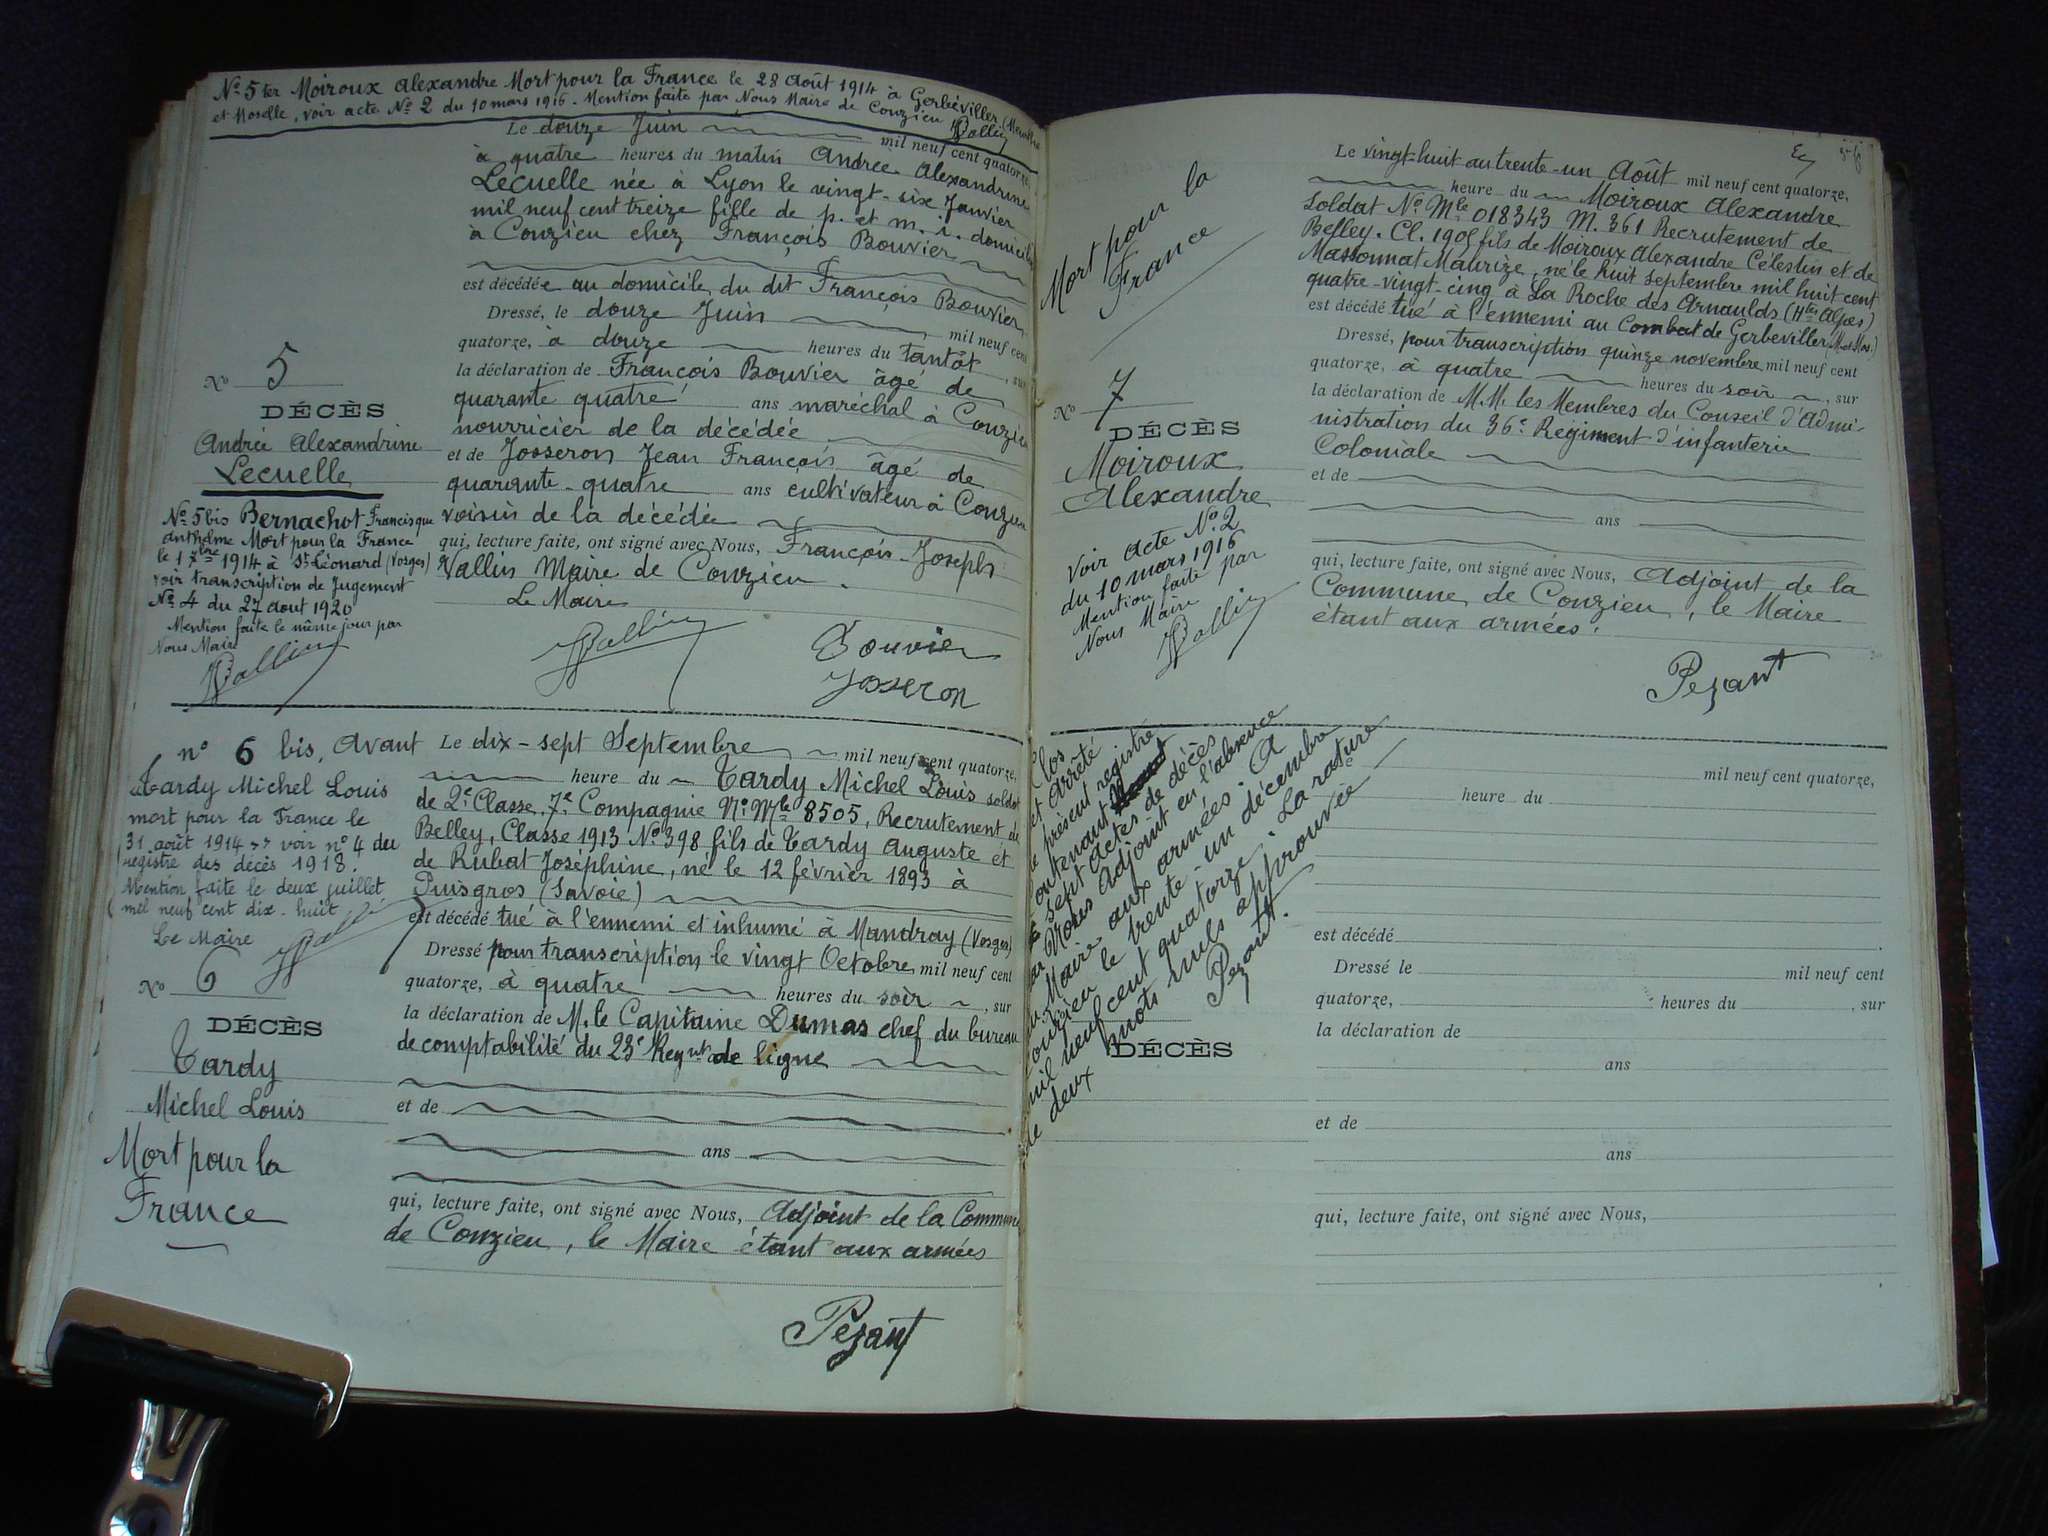 No 5 ter Moiroux Alexandre Mort pour la France le 28 Août 1914 à Gerbéviller (Meurthe
et Moselle, voir acte No 2 du 10 mars 1916 - Mention faite par Nous Maire de Conzieu
Vallin
Le douze Juin mil neuf cent quatorze,
à quatre heures du matin Andrée Alexandrine
Lecuelle née à Lyon le vingt-six Janvier
mil neuf cent treize fille de p. et m. i. domicil
à Conzieu chez François Bouvier
est décédée au domicile du dit François Bouvier
Dressé, le douze Juin mil neuf cent
quatorze, à douze heures du tantôt, sur
la déclaration de François Bouvier âgé de
quarante quatre ans maréchal à Conzieu
nourricier de la décédée
et de Josseron Jean François âgé de
quarante-quatre ans cultivateur à Conzieu
voisin de la décédée
qui, lecture faite, ont signé avec Nous, François-Joseph
Vallin Maire de Conzieu.
Le Maire
Vallin
Bouvier
Josseron
No 5
DÉCÈS
Andrée Alexandrine
Lecuelle
No 5 bis Bernachot Francisque
anthelme Mort pour la France
le 1 Xbre 1914 à St Léonard (Vosges)
voir transcription de Jugement
No 4 du 27 aout 1920
Mention faite le même jour par
Nous Maire
Vallin
no 6 bis, avant
Tardy Michel Louis
mort pour la France le
31 août 1914 voir no 4 du
registre des décès 1918.
Mention faite le deux juillet
mil neuf cent dix-huit
Le Maire
Vallin
No 6
DÉCÈS
Tardy
Michel Louis
Mort pour la
France
Le dix-sept Septembre mil neuf cent quatorze,
heure du Tardy Michel Louis soldat
de 2e Classe, 7e Compagnie No Mle 8505, Recrutement de
Belley, Classe 1913 No 398 fils de Tardy Auguste et
de Rubat Joséphine, né le 12 février 1893 à
Puisgros (Savoie)
est décédé tué à l'ennemi et inhumé à Mandray (Vosges)
Dressé pour transcription le vingt Octobre mil neuf cent
quatorze, à quatre heures du soir, sur
la déclaration de M. le Capitaine Dumas chef du bureau
de comptabilité du 23e Regnt de ligne
et de
ans
qui, lecture faite, ont signé avec Nous, Adjoint de la Commune
de Conzieu, le Maire étant aux armées
Pezant
Mort pour la
France
No 7
DÉCÈS
Moiroux
Alexandre
Voir Acte No 2
du 10 mars 1916
Mention faite par
Nous Maire
Vallin
Le vingt-huit au trente-un Août mil neuf cent quatorze,
heure du Moiroux Alexandre
Soldat No Mle 018343 M. 361 Recrutement de
Belley. Cl. 1905 fils de Moiroux Alexandre Célestin et de
Massonnat Maurize, né le huit Septembre mil huit cent
quatre-vingt-cinq à La Roche des Arnaulds (Htes Alpes)
est décédé tué à l'ennemi au Combat de Gerbeviller (M. et Mos.)
Dressé, pour transcription quinze novembre mil neuf cent
quatorze, à quatre heures du soir, sur
la déclaration de M.M. les Membres du Conseil d'Admi-
nistration du 36e Regiment d'infanterie
Coloniale
et de
ans
qui, lecture faite, ont signé avec Nous, Adjoint de la
Commune de Conzieu, le Maire
étant aux armées.
Pezant
Clos
et Arrêté
le présent registre
contenant
sept actes de décès
par Nous Adjoint en l'absence
du Maire aux armées. A
Conzieu le trente-un décembre
mil neuf cent quatorze. La rature
de deux mots nuls approuvée
Pezant.
DÉCÈS
mil neuf cent quatorze,
heure du
est décédé
Dressé le mil neuf cent
quatorze, heures du , sur
la déclaration de
ans
et de
ans
qui, lecture faite, ont signé avec Nous,